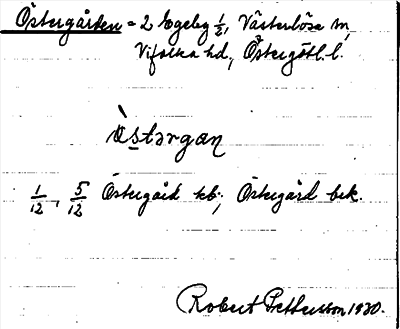 Östergården = 2 Egeby 1/2, Västerlösa sn,
Vifolka hd, Östergötl. l.
Östərgan
1/12, 5/12 Östergård kb; Östergård bek.
Robert Pettersson 1930.